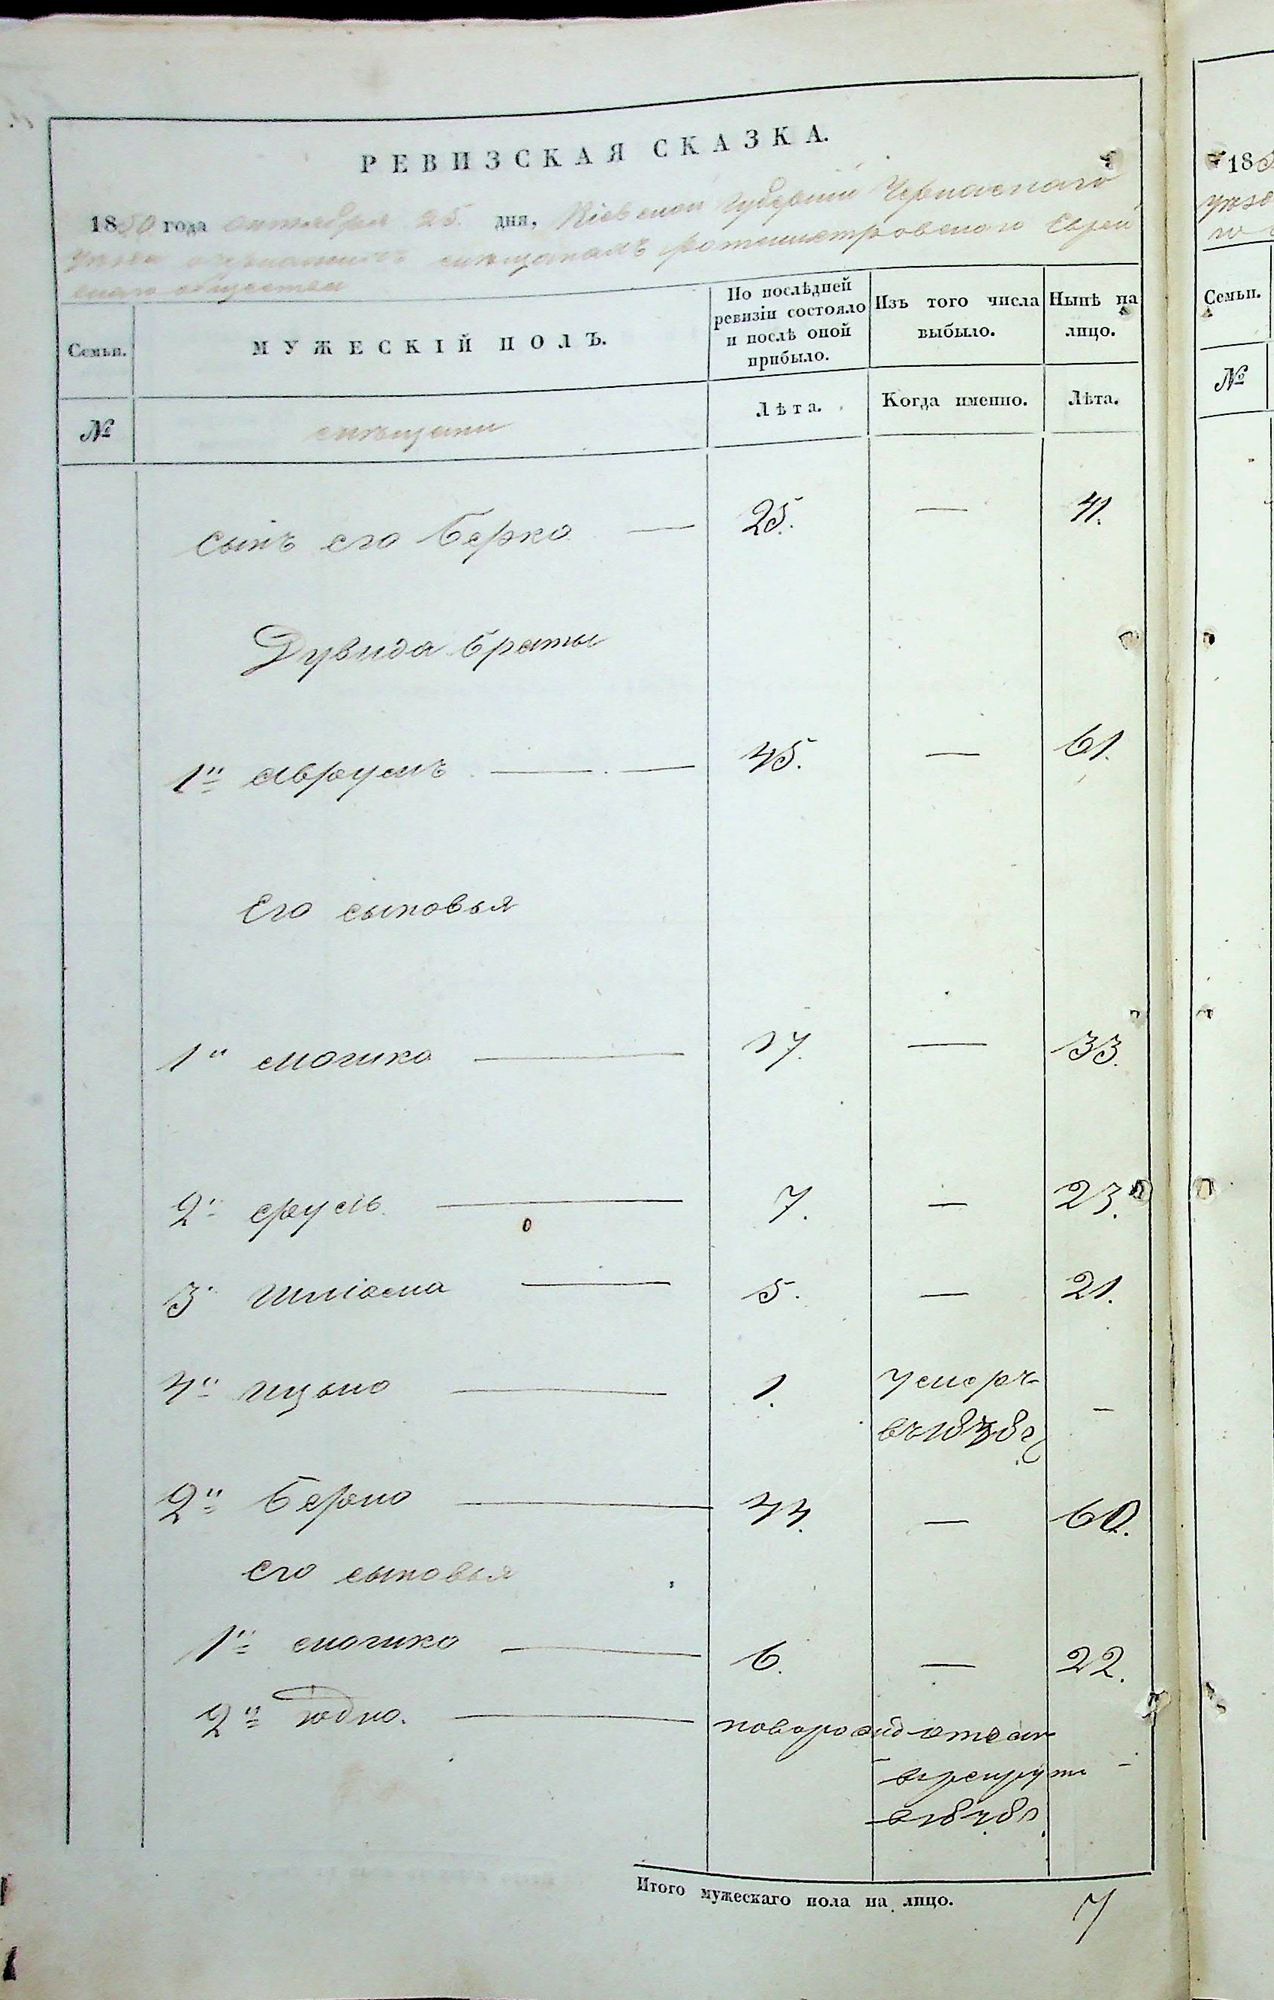 РЕВИЗСКАЯ СКАЗКА.
1850 года октября 25 дня, Кіевской Губерніи Черкаскаго
уезда о мещанахъ Ротмистровскаго Еврей
скаго общества
Семьи.
МУЖЕСКІЙ ПОЛЪ.
По послѣдней ревизіи состояло и послѣ оной прибыло.
Изъ того числа выбыло.
Нынѣ на лицо.
№
мещани
Лѣта.
Когда именно.
Лѣта.
сынъ его Берко — 25. — 41.
Дувида браты
1й Аврумъ — 45. — 61.
Его сыновья
1й Мошко — 17. — 33.
2й Сруль — 7. — 23.
3й Шліома — 5. — 21.
4й Ицько — 1. умеръ
въ 1838г —
2й Берко — 44. — 60.
его сыновья
1й Мошко — 6. — 22.
2й Юдко. — новорож отдан
в рекруты —
в 1848г.
Итого мужескаго пола на лицо. 7
18
Семьи.
№